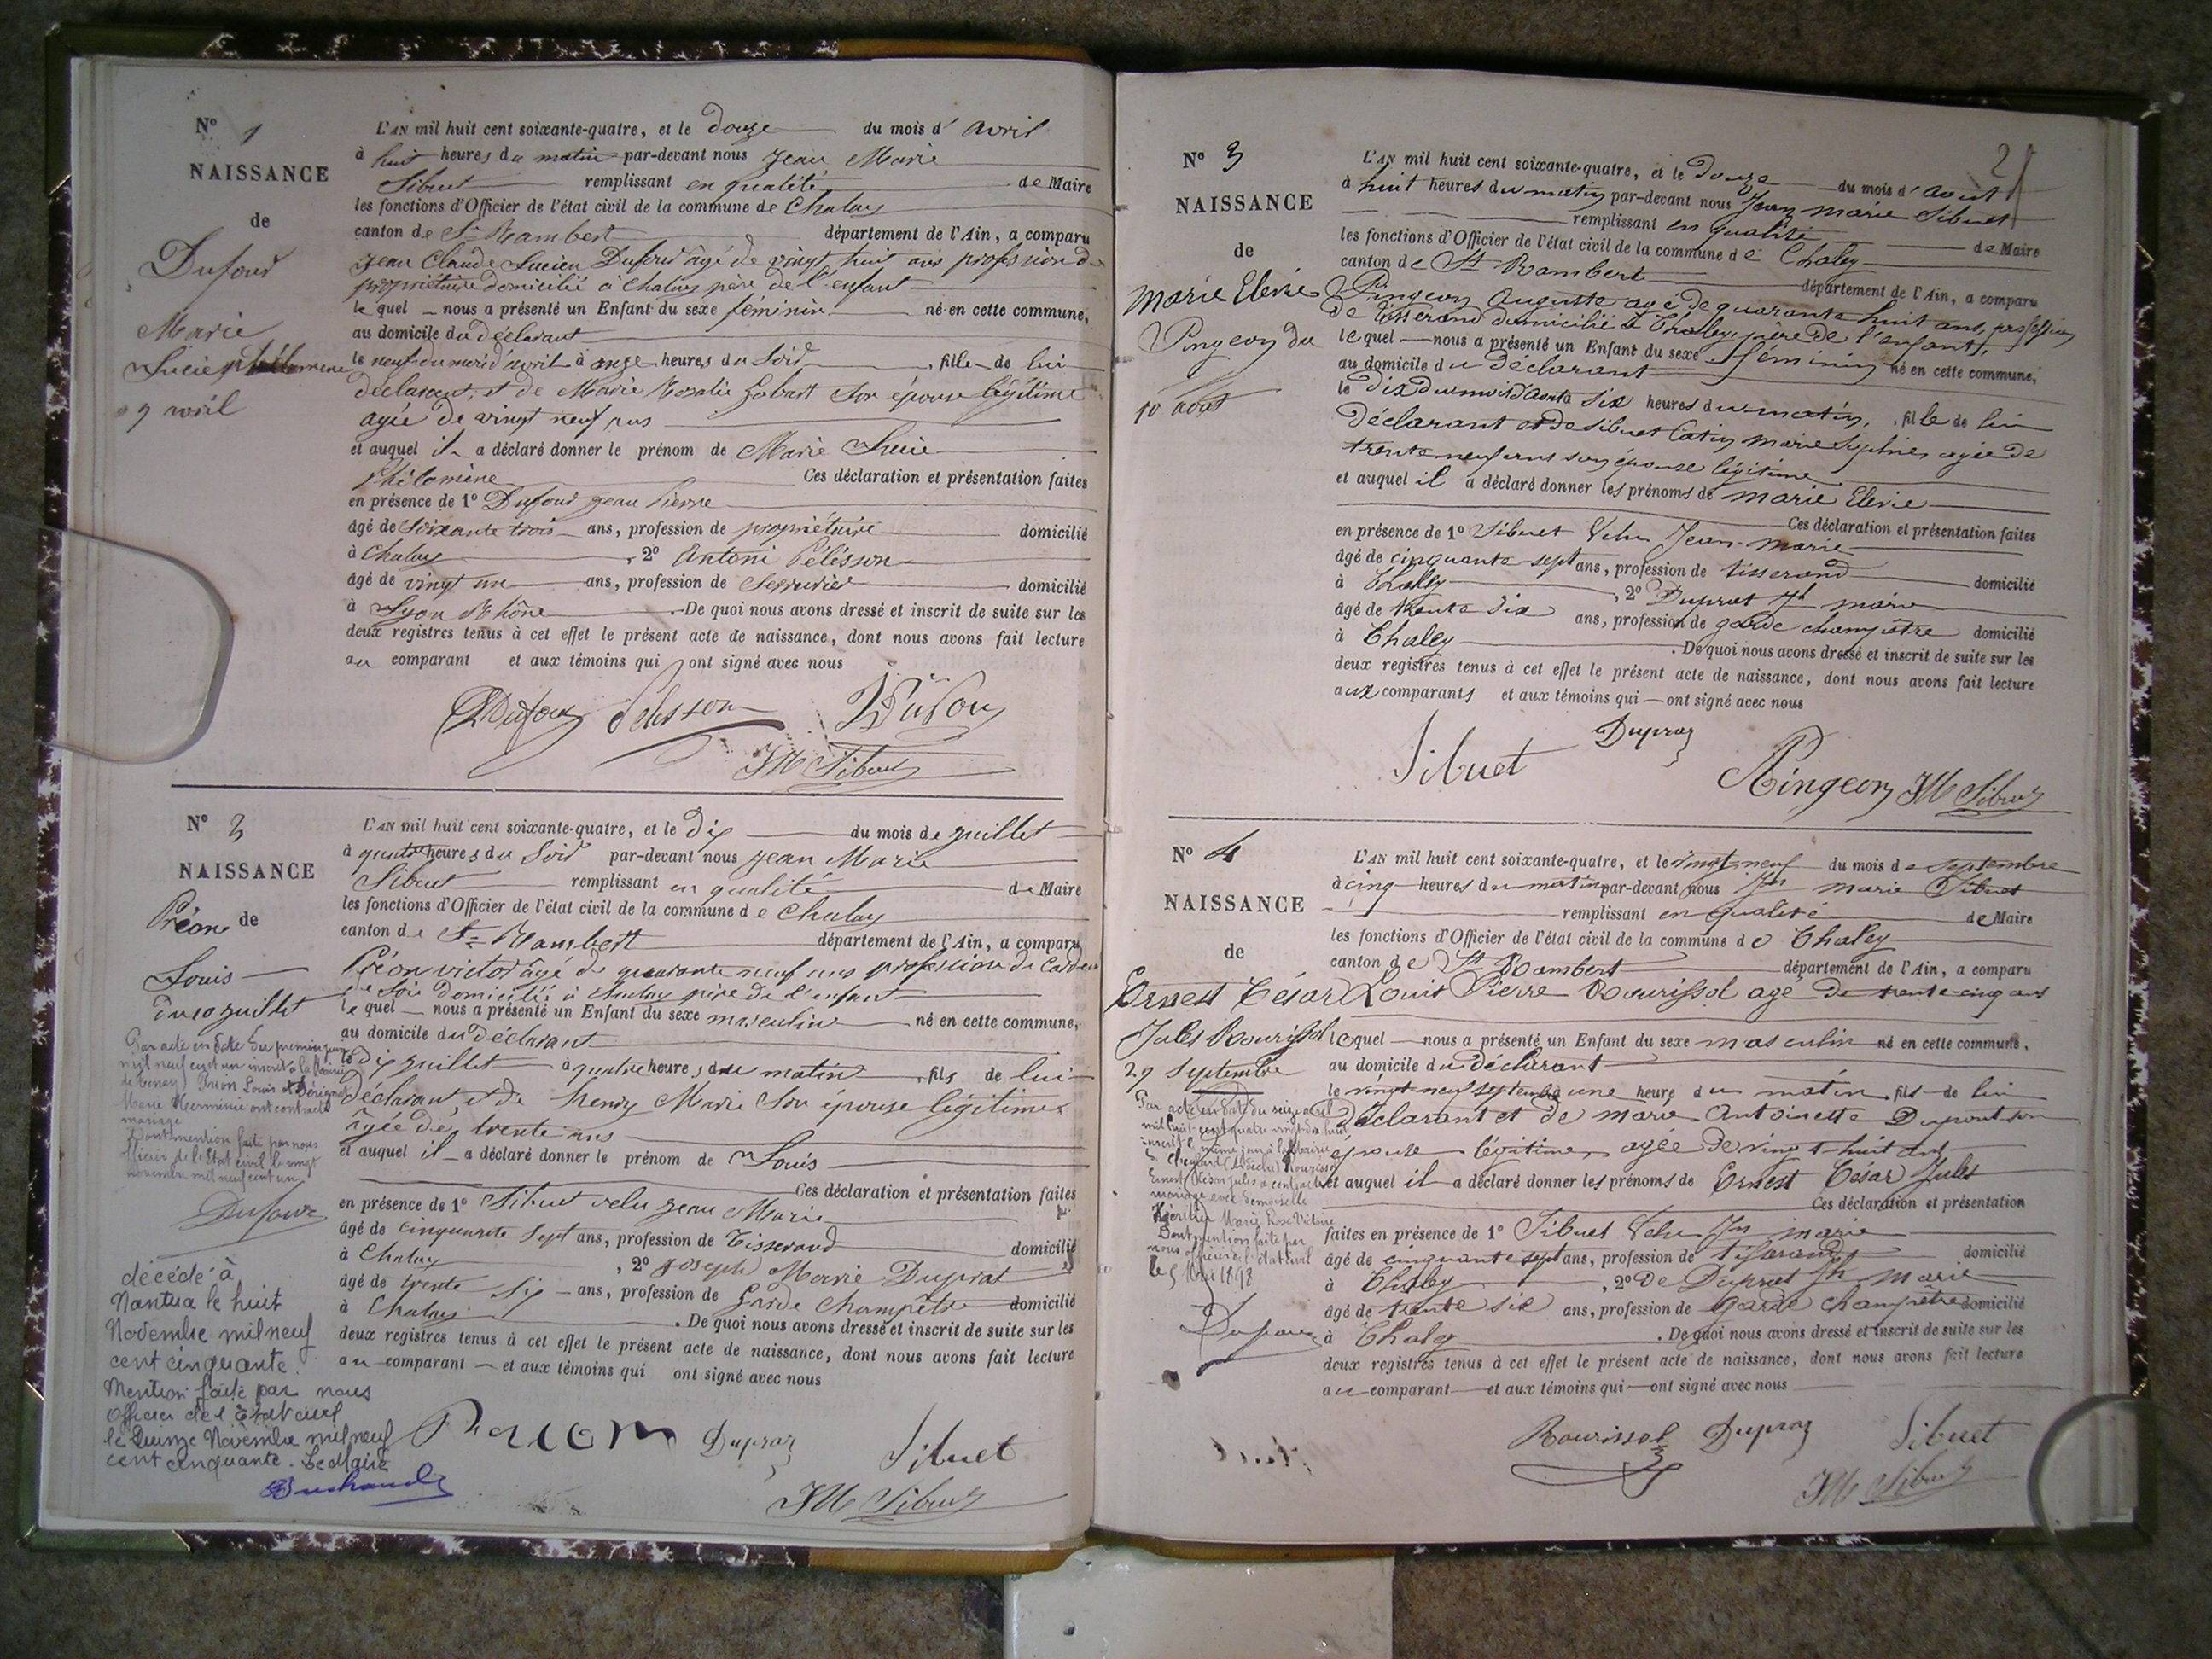 N° 1
NAISSANCE
de
Dufour
Marie
Lucie philomene
9 avril
L'AN mil huit cent soixante-quatre, et le douze du mois d' avril
à huit heures du matin par-devant nous Jean Marie
Sibuet remplissant en qualité de Maire
les fonctions d'Officier de l'état civil de la commune de Chaley
canton de St Rambert département de l'Ain, a comparu
Jean Claude Lucien Dufour âgé de vingt huit ans profession de
propriétaire domicilié à Chaley père de l'enfant
le quel nous a présenté un Enfant du sexe féminin né en cette commune,
au domicile du déclarant
le neuf du mois d'avril à onze heures du Soir, fille de lui
déclarant, et de Marie Rosalie son épouse légitime
agée de vingt neuf ans
et auquel il a déclaré donner le prénom de Marie Lucie
Philomène Ces déclaration et présentation faites
en présence de 1° Dufour Jean Pierre
âgé de Soixante trois ans, profession de propriétaire domicilié
à Chaley, 2° Antoni Pélisson
âgé de vingt un ans, profession de Serrurier domicilié
à Lyon Rhône. De quoi nous avons dressé et inscrit de suite sur les
deux registres tenus à cet effet le présent acte de naissance, dont nous avons fait lecture
au comparant et aux témoins qui ont signé avec nous
Dufour Pelisson Dufour
JM Sibuet
N° 2
NAISSANCE
de
Préon
Louis
du 10 juillet
Par acte en date du premier juin
mil neuf cent un inscrit à la Mairie
de Tenay Préon Louis et
Marie Herminie ont contracté
mariage
Dont mention faite par nous
officier de l'Etat civil le vingt
novembre mil neuf cent un
Dufour
décédé à
Nantua le huit
Novembre mil neuf
cent cinquante.
Mention faite par nous
Officier de l'Etat civil
le Quinze Novembre mil neuf
cent cinquante. Le Maire
L'AN mil huit cent soixante-quatre, et le dix du mois de juillet
à quatre heures du Soir par-devant nous Jean Marie
Sibuet remplissant en qualité de Maire
les fonctions d'Officier de l'état civil de la commune de Chaley
canton de St Rambert département de l'Ain, a comparu
Préon victor âgé de quarante neuf ans profession de Cardeur
de Soie domicilié à Chaley père de l'enfant
le quel nous a présenté un Enfant du sexe masculin né en cette commune,
au domicile du déclarant
le dix juillet à quatre heures du matin, fils de lui
déclarant, et de Henry Marie Son épouse légitime
âgée de trente ans
et auquel il a déclaré donner le prénom de Louis
Ces déclaration et présentation faites
en présence de 1° Sibuet velu Jean Marie
âgé de cinquante Sept ans, profession de Tisserand domicilié
à Chaley, 2° Joseph Marie Duprat
âgé de trente Six ans, profession de Garde Champêtre domicilié
à Chaley. De quoi nous avons dressé et inscrit de suite sur les
deux registres tenus à cet effet le présent acte de naissance, dont nous avons fait lecture
au comparant et aux témoins qui ont signé avec nous
Dupraz Sibuet
JM Sibuet
2
N° 3
NAISSANCE
de
Marie Elevie
Pingeon du
10 aout
L'AN mil huit cent soixante-quatre, et le Douze du mois d' aout
à huit heures du matin par-devant nous Jean marie Sibuet
remplissant en qualité de Maire
les fonctions d'Officier de l'état civil de la commune de Chaley
canton de St Rambert département de l'Ain, a comparu
Pingeon Auguste agé de quarante huit ans, profession
de tisserand domicilié à Chaley, père de l'enfant,
le quel nous a présenté un Enfant du sexe féminin né en cette commune,
au domicile du déclarant
le Dix du mois d'aout à six heures du matin, fille de lui
déclarant et de Sibuet Catin marie agée de
trente neuf ans son épouse légitime
et auquel il a déclaré donner les prénoms de marie Elevie
Ces déclaration et présentation faites
en présence de 1° Sibuet Velu Jean-marie
âgé de cinquante-sept ans, profession de tisserand domicilié
à Chaley, 2° Duprat Jh marie
âgé de trente Six ans, profession de garde champêtre domicilié
à Chaley. De quoi nous avons dressé et inscrit de suite sur les
deux registres tenus à cet effet le présent acte de naissance, dont nous avons fait lecture
aux comparants et aux témoins qui ont signé avec nous
Sibuet Dupraz
Pingeon JM Sibuet
N° 4
NAISSANCE
de
Ernest César
Jules Rourissol
29 Septembre
Par acte en date du seize avril
mil huit cent quatre vingt dix huit
inscrit le même jour à la Mairie
Ernest César Jules a contracté
mariage avec Demoiselle
Marie Rose Victoire
Dont mention faite par
nous officier de l'état civil
le 5 Mai 1898
Dufour
L'AN mil huit cent soixante-quatre, et le vingt neuf du mois de Septembre
à cinq heures du matin par-devant nous Jn marie Sibuet
remplissant en qualité de Maire
les fonctions d'Officier de l'état civil de la commune de Chaley
canton de St Rambert département de l'Ain, a comparu
Louis Pierre Rourissol agé de trente cinq ans
lequel nous a présenté un Enfant du sexe masculin né en cette commune,
au domicile du déclarant
le vingt-neuf septembre une heure du matin fils de lui
déclarant et de marie Antoinette Dupont son
épouse légitime, agée de vingt-huit ans
et auquel il a déclaré donner les prénoms de Ernest César Jules
Ces déclaration et présentation
faites en présence de 1° Sibuet Velu Jn marie
âgé de cinquante sept ans, profession de tisserand domicilié
à Chaley, 2° De Duprat Jh marie
âgé de trente six ans, profession de garde champêtre domicilié
à Chaley. De quoi nous avons dressé et inscrit de suite sur les
deux registres tenus à cet effet le présent acte de naissance, dont nous avons fait lecture
au comparant et aux témoins qui ont signé avec nous
Rourissol Dupraz Sibuet
JM Sibuet